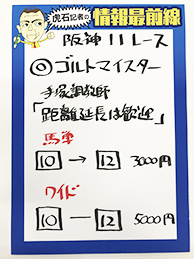 虎石記者の
情報最前線
阪神11レース
◎ゴルトマイスター
手塚調教師
「距離延長は歓迎」
馬単
10→12 3000円
ワイド
10－12 5000円